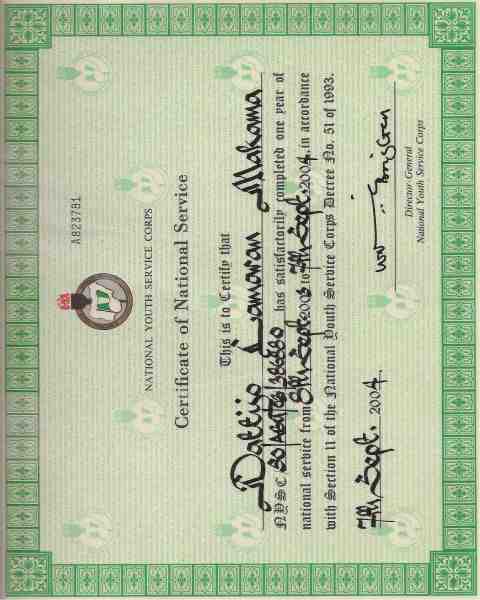 A823781
NATIONAL YOUTH SERVICE CORPS
Certificate of National Service
This is to Certify that
Dattijo Lamaran Makama
NYSC has satisfactorily completed one year of
national service from 8th Sept. 2003 to 7th Sept. 2004, in accordance
with Section 11 of the National Youth Service Corps Decree No. 51 of 1993.
7th Sept. 2004.
Director-General
National Youth Service Corps